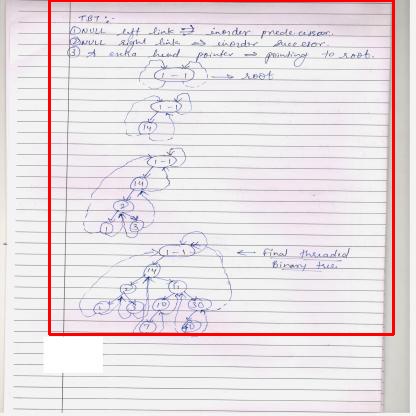 TBT :-
① NULL left link ⇒ inorder predecessor.
② NULL right link ⇒ inorder successor.
③ A extra head pointer → pointing to root.
1 - 1 → root
1 - 1
14
1 - 1
14
2
1 3
1 - 1 ← Final threaded
Binary tree.
14
2
1 3 10 30
7